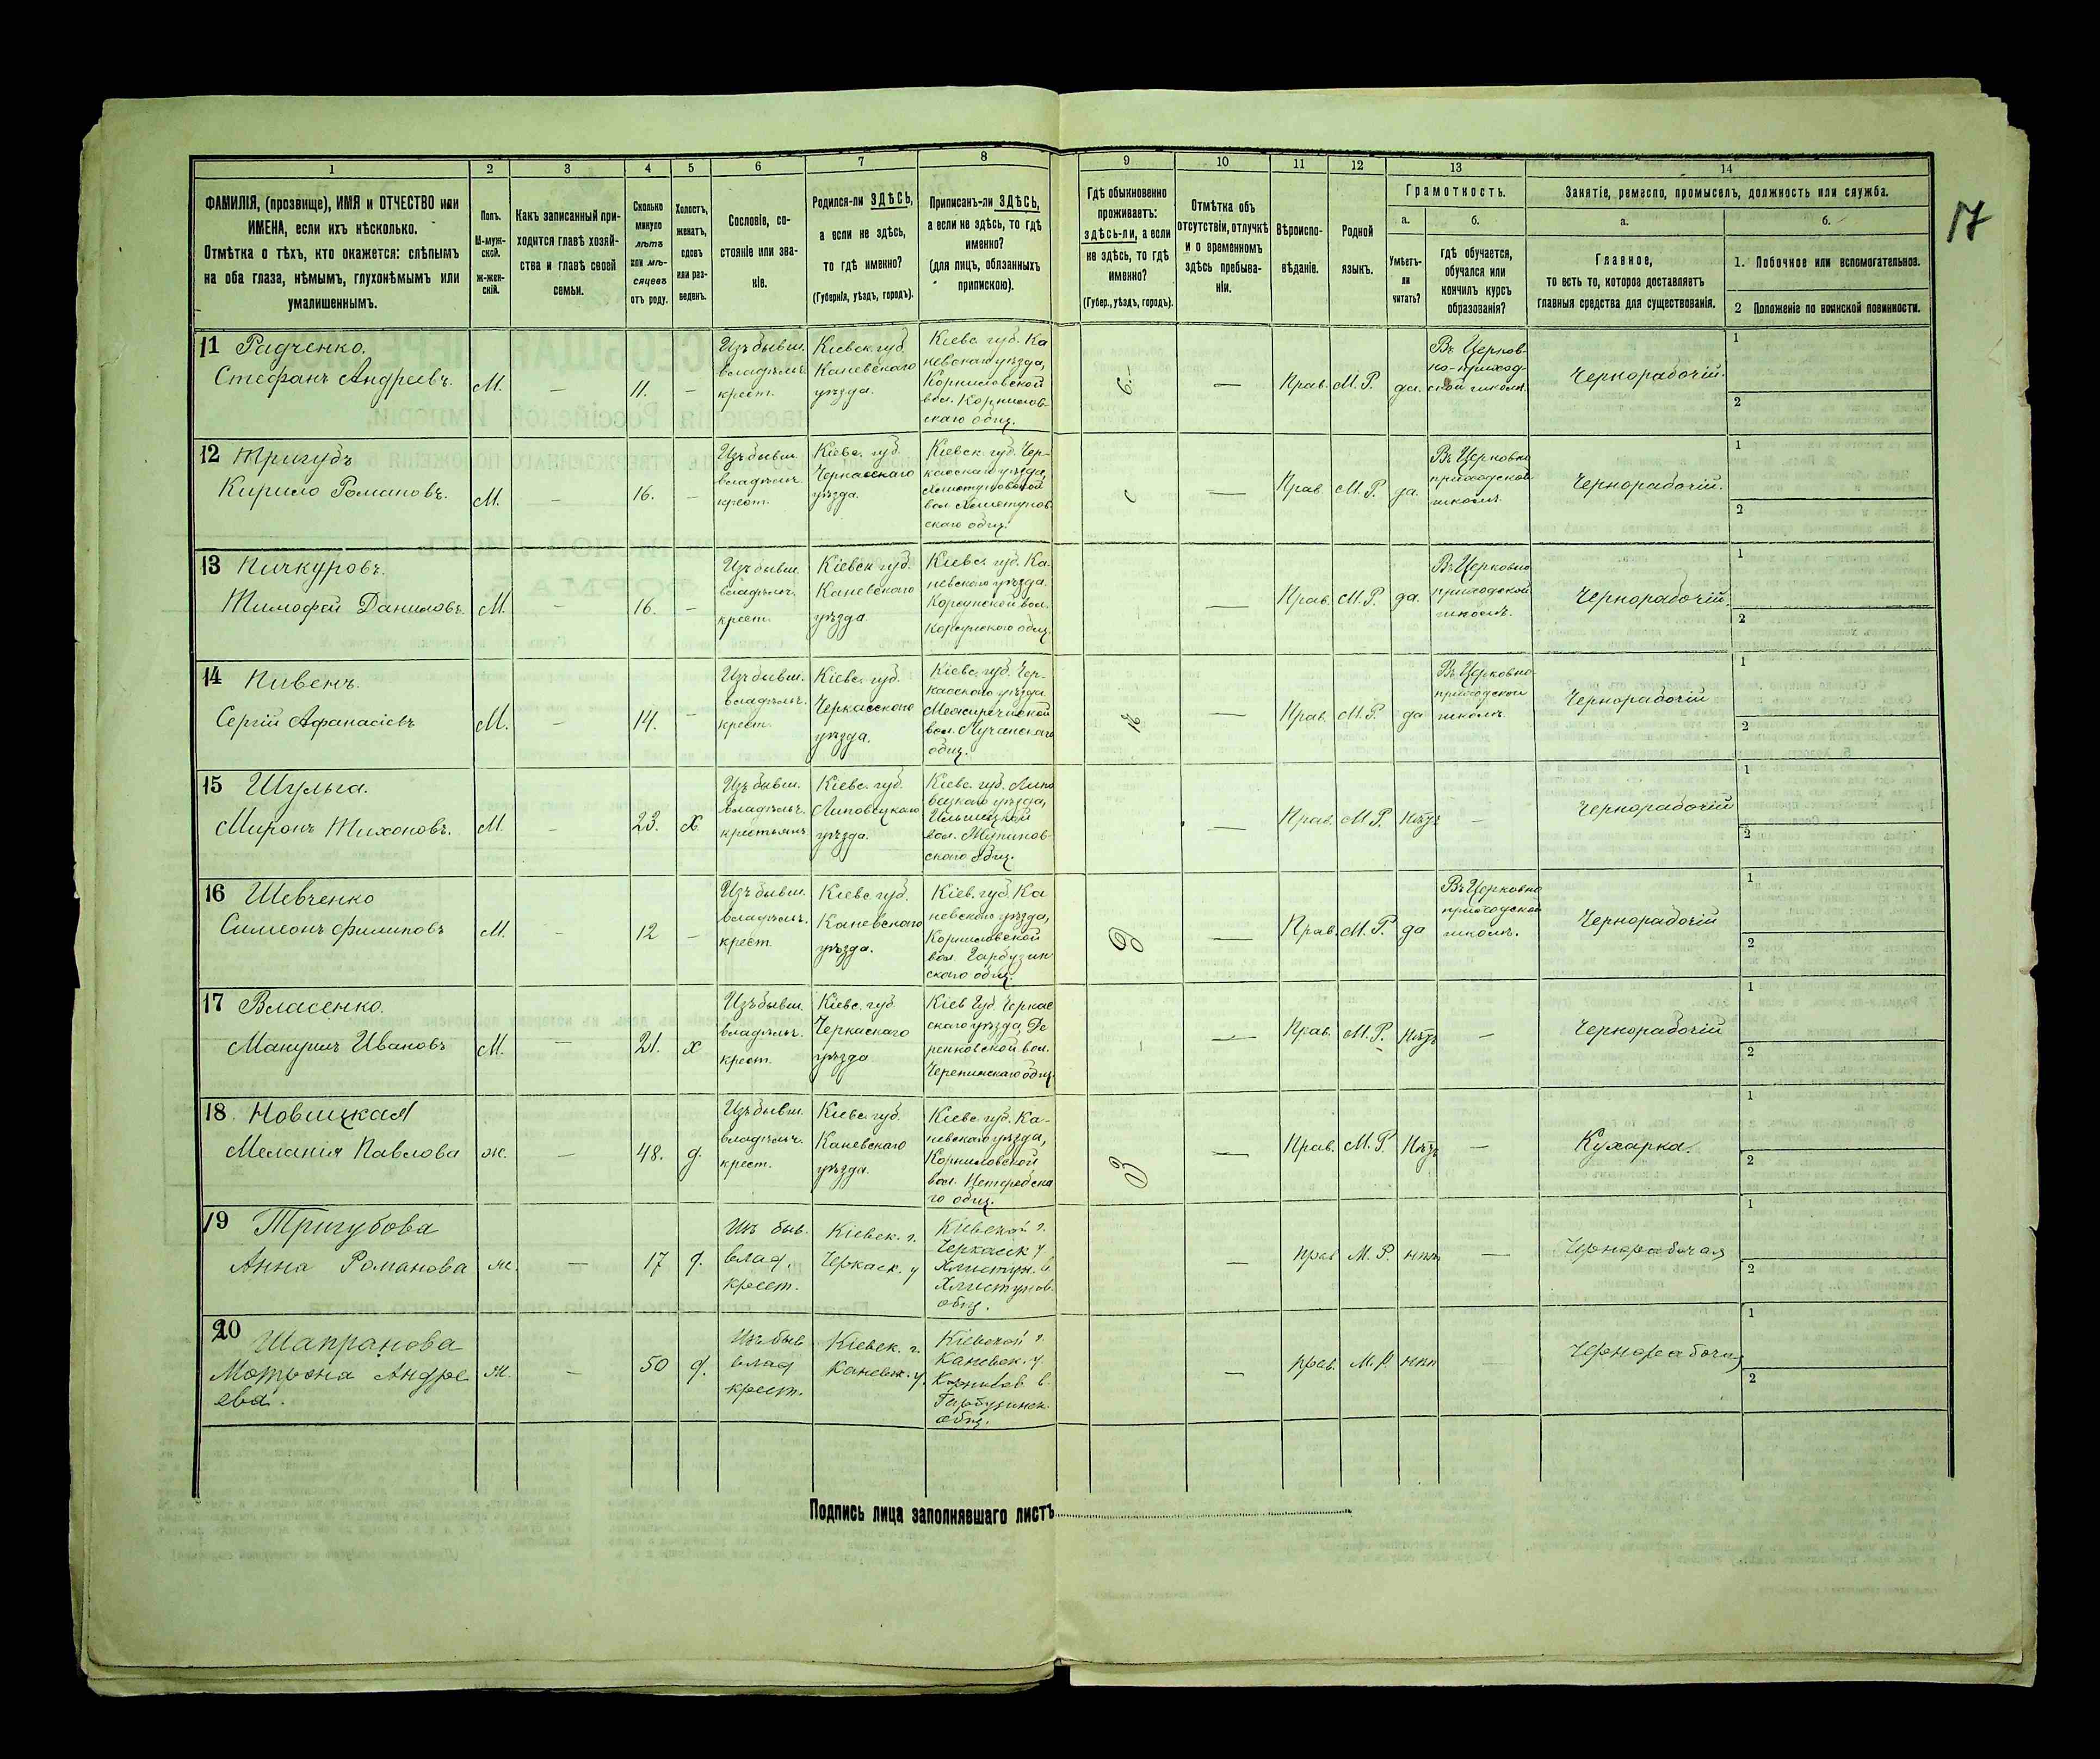 17
1 2 3 4 5 6 7 8 9 10 11 12 13 14
ФАМИЛІЯ, (прозвище), ИМЯ и ОТЧЕСТВО или
ИМЕНА, если ихъ нѣсколько.
Отмѣтка о тѣхъ, кто окажется: слѣпымъ
на оба глаза, нѣмымъ, глухонѣмымъ или
умалишеннымъ.
Полъ.
М-муж-
ской.
ж-жен-
скій.
Какъ записанный при-
ходится главѣ хозяй-
ства и главѣ своей
семьи.
Сколько
минуло
лѣтъ
или мѣ-
сяцевъ
отъ роду.
Холостъ,
женатъ,
вдовъ
или раз-
веденъ.
Сословіе, со-
стояніе или зва-
ніе.
Родился-ли ЗДѢСЬ,
а если не здѣсь,
то гдѣ именно?
(Губернія, уѣздъ, городъ).
Приписанъ-ли ЗДѢСЬ,
а если не здѣсь, то гдѣ
именно?
(для лицъ, обязанныхъ
припискою).
Гдѣ обыкновенно
проживаетъ:
здѣсь-ли, а если
не здѣсь, то гдѣ
именно?
(Губер., уѣздъ, городъ).
Отмѣтка объ
отсутствіи, отлучкѣ
и о временномъ
здѣсь пребыва-
ніи.
Вѣроиспо-
вѣданіе.
Родной
языкъ.
Грамотность.
а.
Умѣетъ-
ли
читать?
б.
гдѣ обучается,
обучался или
кончилъ курсъ
образованія?
Занятіе, ремесло, промыселъ, должность или служба.
а.
Главное,
то есть то, которое доставляетъ
главныя средства для существованія.
б.
1. Побочное или вспомогательное.
2 Положеніе по воинской повинности.
11 Радченко.
Стефанъ Андреевъ.
М. — 11. —
Изъ бывш.
владѣльч.
крест.
Кіевск. губ.
Каневскаго
уѣзда.
Кіевс. губ. Ка
невскаго уѣзда,
Корниловской
вол. Корнилов-
скаго общ.
— Прав. М. Р. да.
Въ Церков-
но-приход-
ской школѣ.
Чернорабочій.
1
2
12 Тригубъ
Кирило Романовъ.
М. — 16. —
Изъ бывш.
владѣльч.
крест.
Кіевс. губ.
Черкасскаго
уѣзда.
Кіевск. губ. Чер-
касскаго уѣзда,
Хлистуновской
вол. Хлистунов
скаго общ.
с — Прав. М. Р. да.
Въ Церковно
приходской
школѣ.
Чернорабочій.
1
2
13 Пичкуровъ.
Тимофей Даниловъ.
М. — 16. —
Изъ бывш.
владѣльч.
крест.
Кіевск губ.
Каневскаго
уѣзда.
Кіевс. губ. Ка-
невскаго уѣзда.
Корсунской вол.
Корсунскаго общ.
— Прав. М. Р. да.
Въ Церковно
приходской
школѣ.
Чернорабочій.
1
2
14 Пивень.
Сергій Афанасіевъ
М. — 14. —
Изъ бывш.
владѣльч.
крест.
Кіевс. губ.
Черкасскаго
уѣзда.
Кіевс. губ. Чер-
касскаго уѣзда.
Межиречиской
вол. Лучанскаго
общ.
— Прав. М. Р. да
Въ Церковно
приходской
школѣ.
Чернорабочій
1
2
15 Шульга.
Миронъ Тихоновъ.
М. — 23. х
Изъ бывш.
владѣльч.
крестьянъ
Кіевс. губ.
Липовецкаго
уѣзда.
Кіевс. губ. Липо
вецкаго уѣзда,
вол.
скаго общ.
— Прав. М. Р. Нѣтъ —
Чернорабочій
1
2
16 Шевченко
Симеонъ Филиповъ
М. — 12 —
Изъ бывш.
владѣльч.
крест.
Кіевс. губ.
Каневскаго
уѣзда.
Кіев. губ. Ка
невскаго уѣзда,
Корниловской
вол. Гарбузин
скаго общ.
— Прав. М. Р. да
Въ Церковно
приходской
школѣ.
Чернорабочій
1
2
17 Власенко.
Ивановъ
М. — 21. х
Изъ бывш.
владѣльч.
крест.
Кіевс. губ
Черкаскаго
уѣзда
Кіев губ. Черкас
скаго уѣзда, Де
ренковской вол.
Черепинскаго общ.
— Прав. М. Р. Нѣтъ —
Чернорабочій
1
2
18 Новицкая
Меланія Павлова
ж. — 48. д.
Изъ бывш.
владѣльч.
крест.
Кіевс. губ.
Каневскаго
уѣзда.
Кіевс. губ. Ка-
невскаго уѣзда,
Корниловской
вол.
го общ.
— Прав. М. Р. Нѣтъ —
Кухарка.
1
2
19 Тригубова
Анна Романова
ж. — 17 д.
Изъ быв.
влад.
крест.
Кіевск. г.
Черкаск. у
Кіевской г.
Черкаск у.
Хлистун. в.
Хлистунов.
общ.
— прав М. Р. нѣтъ —
Чернорабочая
1
2
20 Шапранова
Мотрона Андре
ева.
ж. — 50 д.
Изъ быв
влад
крест.
Кіевск. г.
Каневск. у.
Кіевской г.
Каневск. у.
Корнилов. в.
Гарбузинск.
общ.
— прав. М. Р нѣт —
Чернорабочая
1
2
Подпись лица заполнявшаго листъ